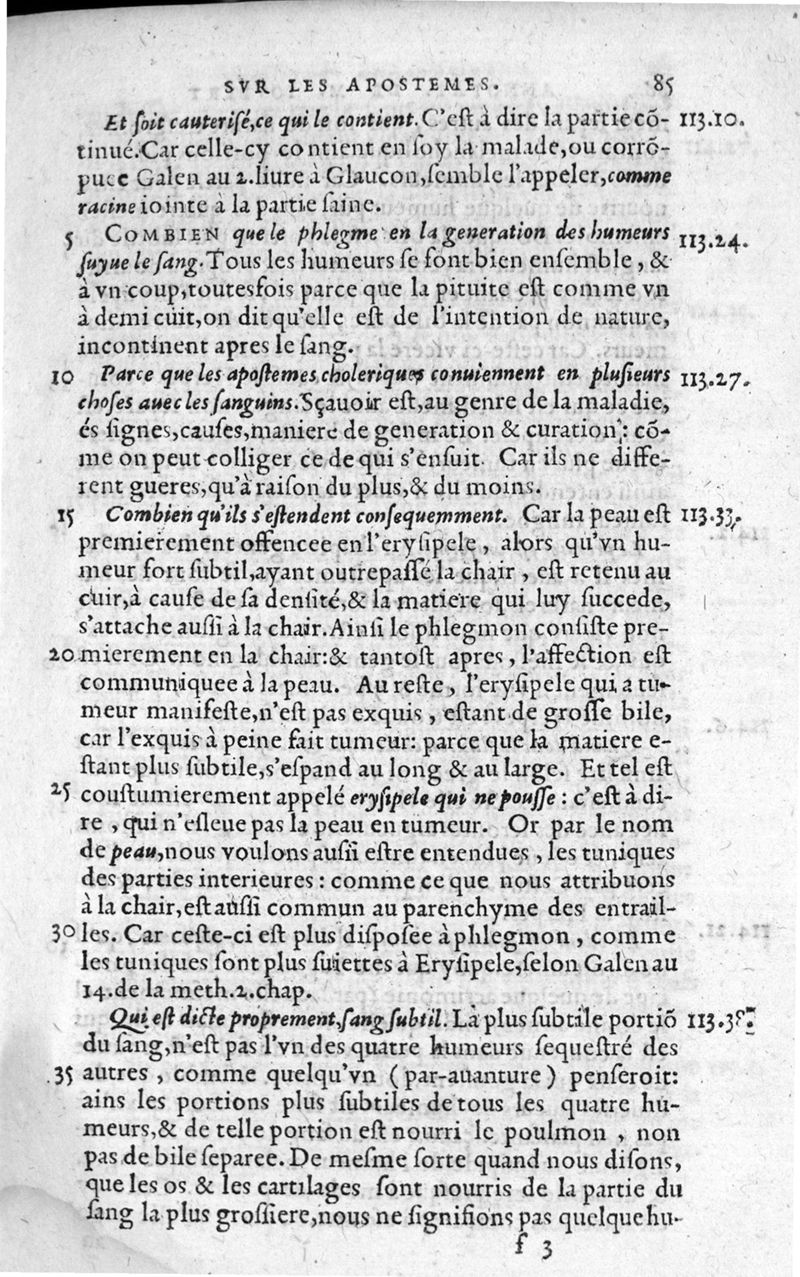 SVR LES APOSTEMES. 85
Et ſoit cauteriſé,ce qui le contient. C'eſt à dire la partie cõ- 113.10.
tinué. Car celle-cy contient en ſoy la malade, ou corrõ-
puee Galen au 2. liure à Glaucon, ſemble l'appeler, comme
racine iointe à la partie ſaine.
5 COMBIEN que le phlegme en la generation des humeurs 113.24.
ſuyue le ſang. Tous les humeurs ſe font bien enſemble, &
à vn coup, toutesfois parce que la pituite eſt comme vn
à demi cuit, on dit qu'elle eſt de l'intention de nature,
incontinent apres le ſang.
10 Parce que les apoſtemes choleriques conuiennent en pluſieurs 113.27.
choſes auec les ſanguins. Sçauoir eſt, au genre de la maladie,
és ſignes, cauſes, maniere de generation & curation : cõ-
me on peut colliger ce de qui s'enſuit. Car ils ne diffe-
rent gueres, qu'à raiſon du plus, & du moins.
15 Combien qu'ils s'eſtendent conſequemment. Car la peau eſt 113.33.
premierement offencee en l'eryſipele, alors qu'vn hu-
meur fort ſubtil, ayant outrepaſſé la chair, eſt retenu au
cuir, à cauſe de ſa denſité, & la matiere qui luy ſuccede,
s'attache auſſi à la chair. Ainſi le phlegmon conſiſte pre-
20 mierement en la chair: & tantoſt apres, l'affection eſt
communiquee à la peau. Au reſte, l'eryſipele qui a tu-
meur manifeſte, n'eſt pas exquis, eſtant de groſſe bile,
car l'exquis à peine fait tumeur: parce que la matiere e-
ſtant plus ſubtile, s'eſpand au long & au large. Et tel eſt
25 couſtumierement appelé eryſipele qui ne pouſſe : c'eſt à di-
re, qui n'eſleue pas la peau en tumeur. Or par le nom
de peau, nous voulons auſſi eſtre entendues, les tuniques
des parties interieures : comme ce que nous attribuons
à la chair, eſt auſſi commun au parenchyme des entrail-
30 les. Car ceſte-ci eſt plus diſpoſee à phlegmon, comme
les tuniques ſont plus ſuiettes à Eryſipele, ſelon Galen au
14. de la meth. 2. chap.
Qui eſt dicte proprement, ſang ſubtil. La plus ſubtile portiõ
du ſang, n'eſt pas l'vn des quatre humeurs ſequeſtré des
35 autres, comme quelqu'vn (par-auanture) penſeroit:
ains les portions plus ſubtiles de tous les quatre hu-
meurs, & de telle portion eſt nourri le poulmon, non
pas de bile ſeparee. De meſme ſorte quand nous diſons,
que les os & les cartilages ſont nourris de la partie du
ſang la plus groſſiere, nous ne ſignifions pas quelque hu-
f 3